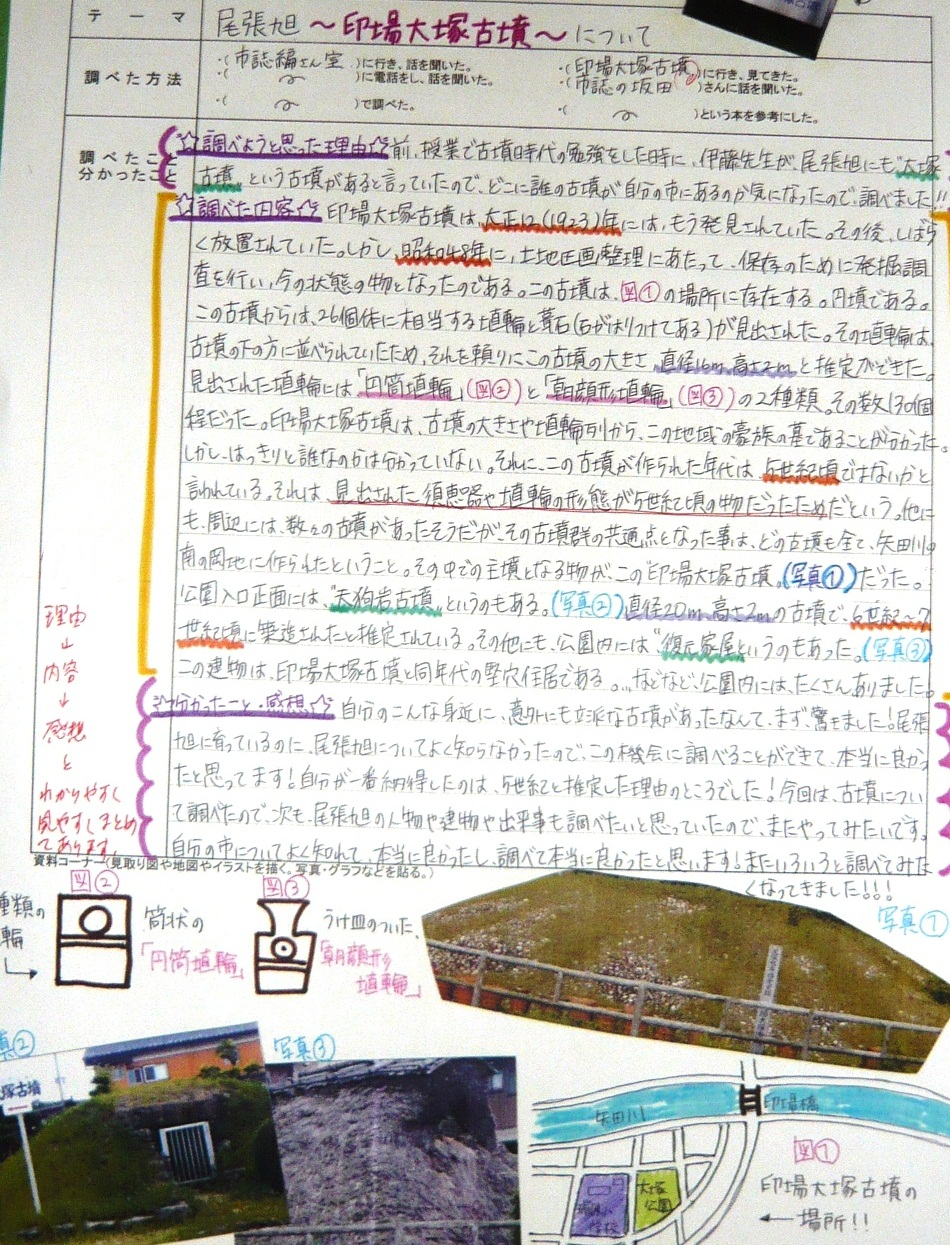 テーマ
尾張旭 ～印場大塚古墳～について
調べた方法
・(市誌編さん室)に行き、話を聞いた。
・( 〃 )に電話をし、話を聞いた。
・( 〃 )で調べた。
・(印場大塚古墳)に行き、見てきた。
・(市誌の坂田)さんに話を聞いた。
・( 〃 )という本を参考にした。
調べたこと
分かったこと
☆調べようと思った理由☆前、授業で古墳時代の勉強をした時に、伊藤先生が、尾張旭にも"大塚
古墳"という古墳があると言っていたので、どこに誰の古墳が自分の市にあるのか気になったので、調べました!!
☆調べた内容☆ 印場大塚古墳は、大正12(1923)年には、もう発見されていた。その後、しばら
く放置されていた。しかし、昭和48年に、土地区画整理にあたって、保存のために発掘調
査を行い、今の状態の物となったのである。この古墳は、図①の場所に存在する。円墳である。
この古墳からは、26個体に相当する埴輪と葺石(石がはりつけてある)が見出された。その埴輪は、
古墳の下の方に並べられていたため、それを頼りにこの古墳の大きさ、直径16m、高さ2mと推定ができた。
見出された埴輪には「円筒埴輪」(図②)と「朝顔形埴輪」(図③)の2種類。その数130個
程だった。印場大塚古墳は、古墳の大きさや埴輪列から、この地域の豪族の墓であることが分かった。
しかし、はっきりと誰なのかは分かっていない。それに、この古墳が作られた年代は、5世紀頃ではないかと
言われている。それは、見出された須恵器や埴輪の形態が5世紀頃の物だったためだという。他に
も、周辺には、数々の古墳があったそうだが、その古墳群の共通点となった事は、どの古墳も全て、矢田川の
南の岡地に作られたということ。その中での主墳となる物が、この印場大塚古墳。(写真①)だった。
公園入口正面には、"天狗岩古墳"というのもある。(写真②)直径20m、高さ2mの古墳で、6世紀～7
世紀頃に築造されたと推定されている。その他にも、公園内には"復元家屋"というのもあった。(写真③)
この建物は、印場大塚古墳と同年代の竪穴住居である。…などなど、公園内には、たくさんありました。
☆分かったこと・感想☆ 自分のこんな身近に、意外にも立派な古墳があったなんて、まず、驚きました!尾張
旭に育っているのに、尾張旭についてよく知らなかったので、この機会に調べることができて、本当に良かっ
たと思ってます!自分が一番納得したのは、5世紀と推定した理由のところでした!今回は、古墳につい
て調べたので、次も、尾張旭の人物や建物や出来事も調べたいと思っていたので、またやってみたいです。
自分の市についてよく知れて、本当に良かったし、調べて本当に良かったと思います!またいろいろと調べてみた
くなってきました!!!
理由
↓
内容
↓
感想
と
わかりやすく
見やすくまとめ
てあります。
資料コーナー(見取り図や地図やイラストを描く。写真・グラフなどを貼る。)
種類の
輪
図②
筒状の
「円筒埴輪」
図③
うけ皿のついた、
「朝顔形
埴輪」
写真①
真②
塚古墳
写真③
矢田川
印場橋
学校
大塚
公園
図①
印場大塚古墳の
← 場所!!